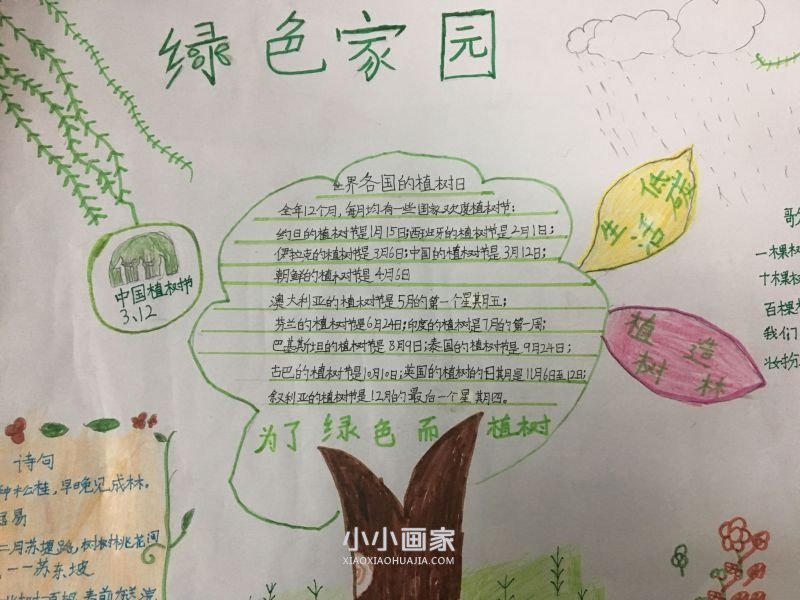 绿色家园
世界各国的植树日
全年12个月,每月均有一些国家欢度植树节:
约旦的植树节是1月15日;西班牙的植树节是2月1日;
伊拉克的植树节是3月6日;中国的植树节是3月12日;
朝鲜的植树节是4月6日
澳大利亚的植树节是5月的第一个星期五;
芬兰的植树节是6月24日;印度的植树是7月的第一周;
巴基斯坦的植树节是8月9日;泰国的植树节是9月24日;
古巴的植树节是10月10日;英国的植树的日期是11月6日至12日;
叙利亚的植树节是12月的最后一个星期四。
为了绿色而植树
中国植树节
3.12
低碳
生活
植树
造林
一棵树
十棵树
百棵
我们
妆扮
诗句
种松桂,早晚见成林。
居易
二月苏堤路,树树桃花间
——苏东坡
小小画家
XIAOXIAOHUAJIA.COM